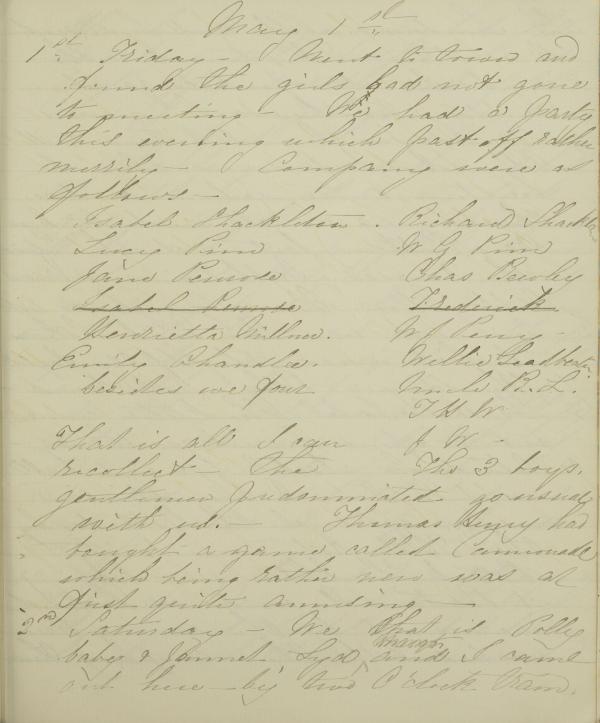 May 1st
1st Friday - Went to town and
found the girls had not gone
to meeting - We had a party
this evening which past off rather
merrily - Company were as
follows -
Isabel Shackleton . Richard Shackleton
Lucy Pim W G Pim
Jane Penrose Chas Bewley
Isabel Penrose Frederick
Henrietta Millner. W J Perry -
Emily Chandlee. Willie Leadbeater.
besides we four Uncle R. L.
T H W
That is all I can J W -
recollect - the The 3 boys.
gentlemen predominated as usual
with us. - Thomas Henry had
bought a game called Cannonade
which being rather new was at
first quite amusing -
2nd Saturday - We that is Polly
baby & Jannet Lyd, Margt and I came
out here by two O'clock tram.